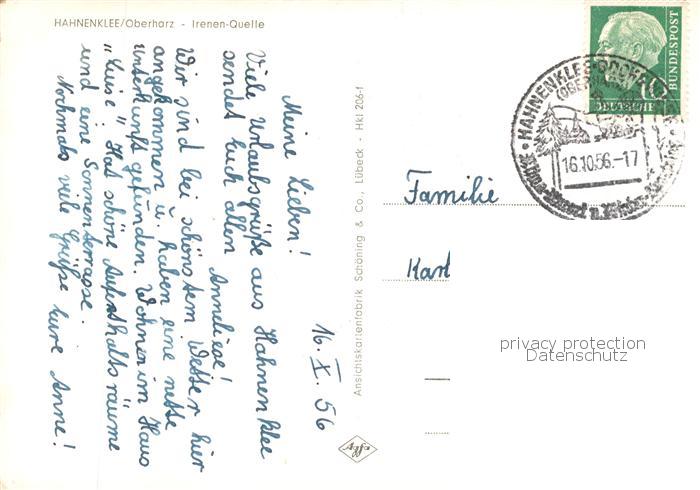 HAHNENKLEE/Oberharz - Irenen-Quelle
16. X. 56
Meine Lieben!
Viele Urlaubsgrüße aus Hahnenklee
sendet Euch allen
Anneliese!
Wir sind bei schönstem Wetter hier
angekommen u. haben eine nette
Unterkunft gefunden. Wohnen im Haus
"Luise". Hat schöne Aufenthaltsräume
und eine Sonnenterrasse.
Nochmals viele Grüße eure Anne!
Ansichtskartenfabrik Schöning & Co., Lübeck - Hkl 206-f
Agfa
Familie
Karl
DEUTSCHE
BUNDESPOST
10
HAHNENKLEE-
(OBERHARZ)
16.10.56.-17
privacy protection
Datenschutz